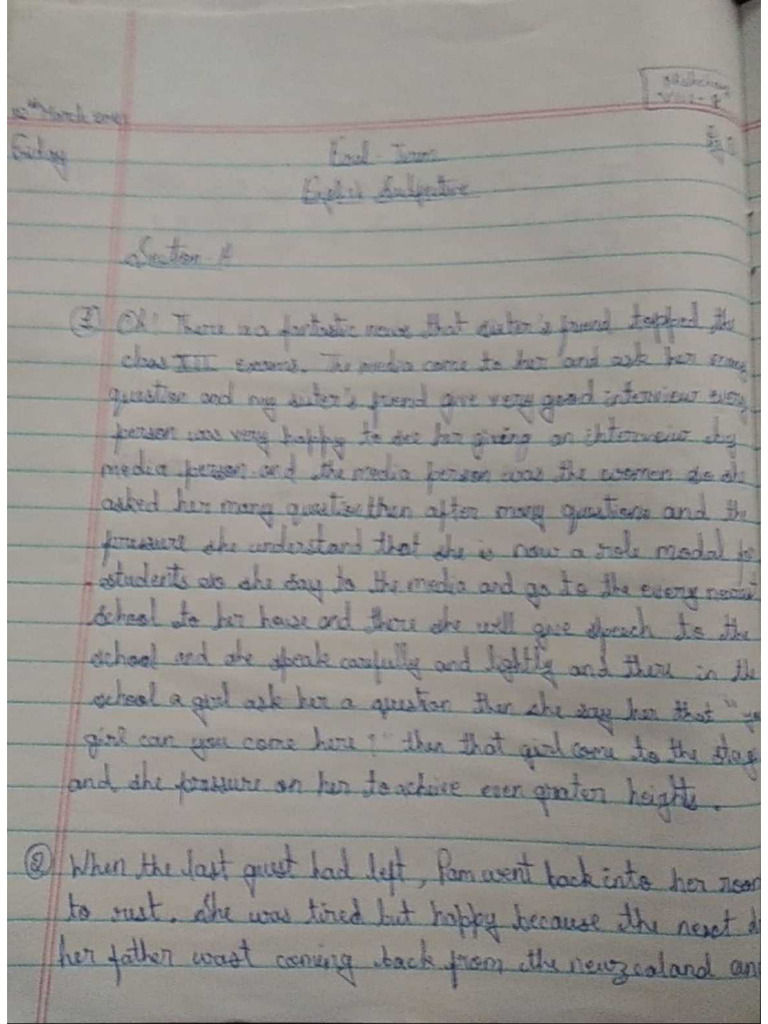 VIII-
March
Friday
Final - Term
English Subjective
Section - A
① Oh! There is a fantastic news that sister's friend topped the
class XII exams. The media come to her and ask her many
question and my sister's friend give very good interview every
person was very happy to see her giving an interweiw by
media person and the media person was the women so she
asked her many question then after many questions and the
pressure she understand that she is now a role modal for
students so she say to the media and go to the every nearest
school to her house and there she will give speech to the
school and she speak carefully and lightly and there in the
school a girl ask her a question then she say her that "
girl can you come here?" then that girl come to the stag
and she pressure on her to achive even greater heights.
② When the last guest had left, Pam went back into her room
to rest. She was tired but happy because the next d
her father wast coming back from the newzealand an